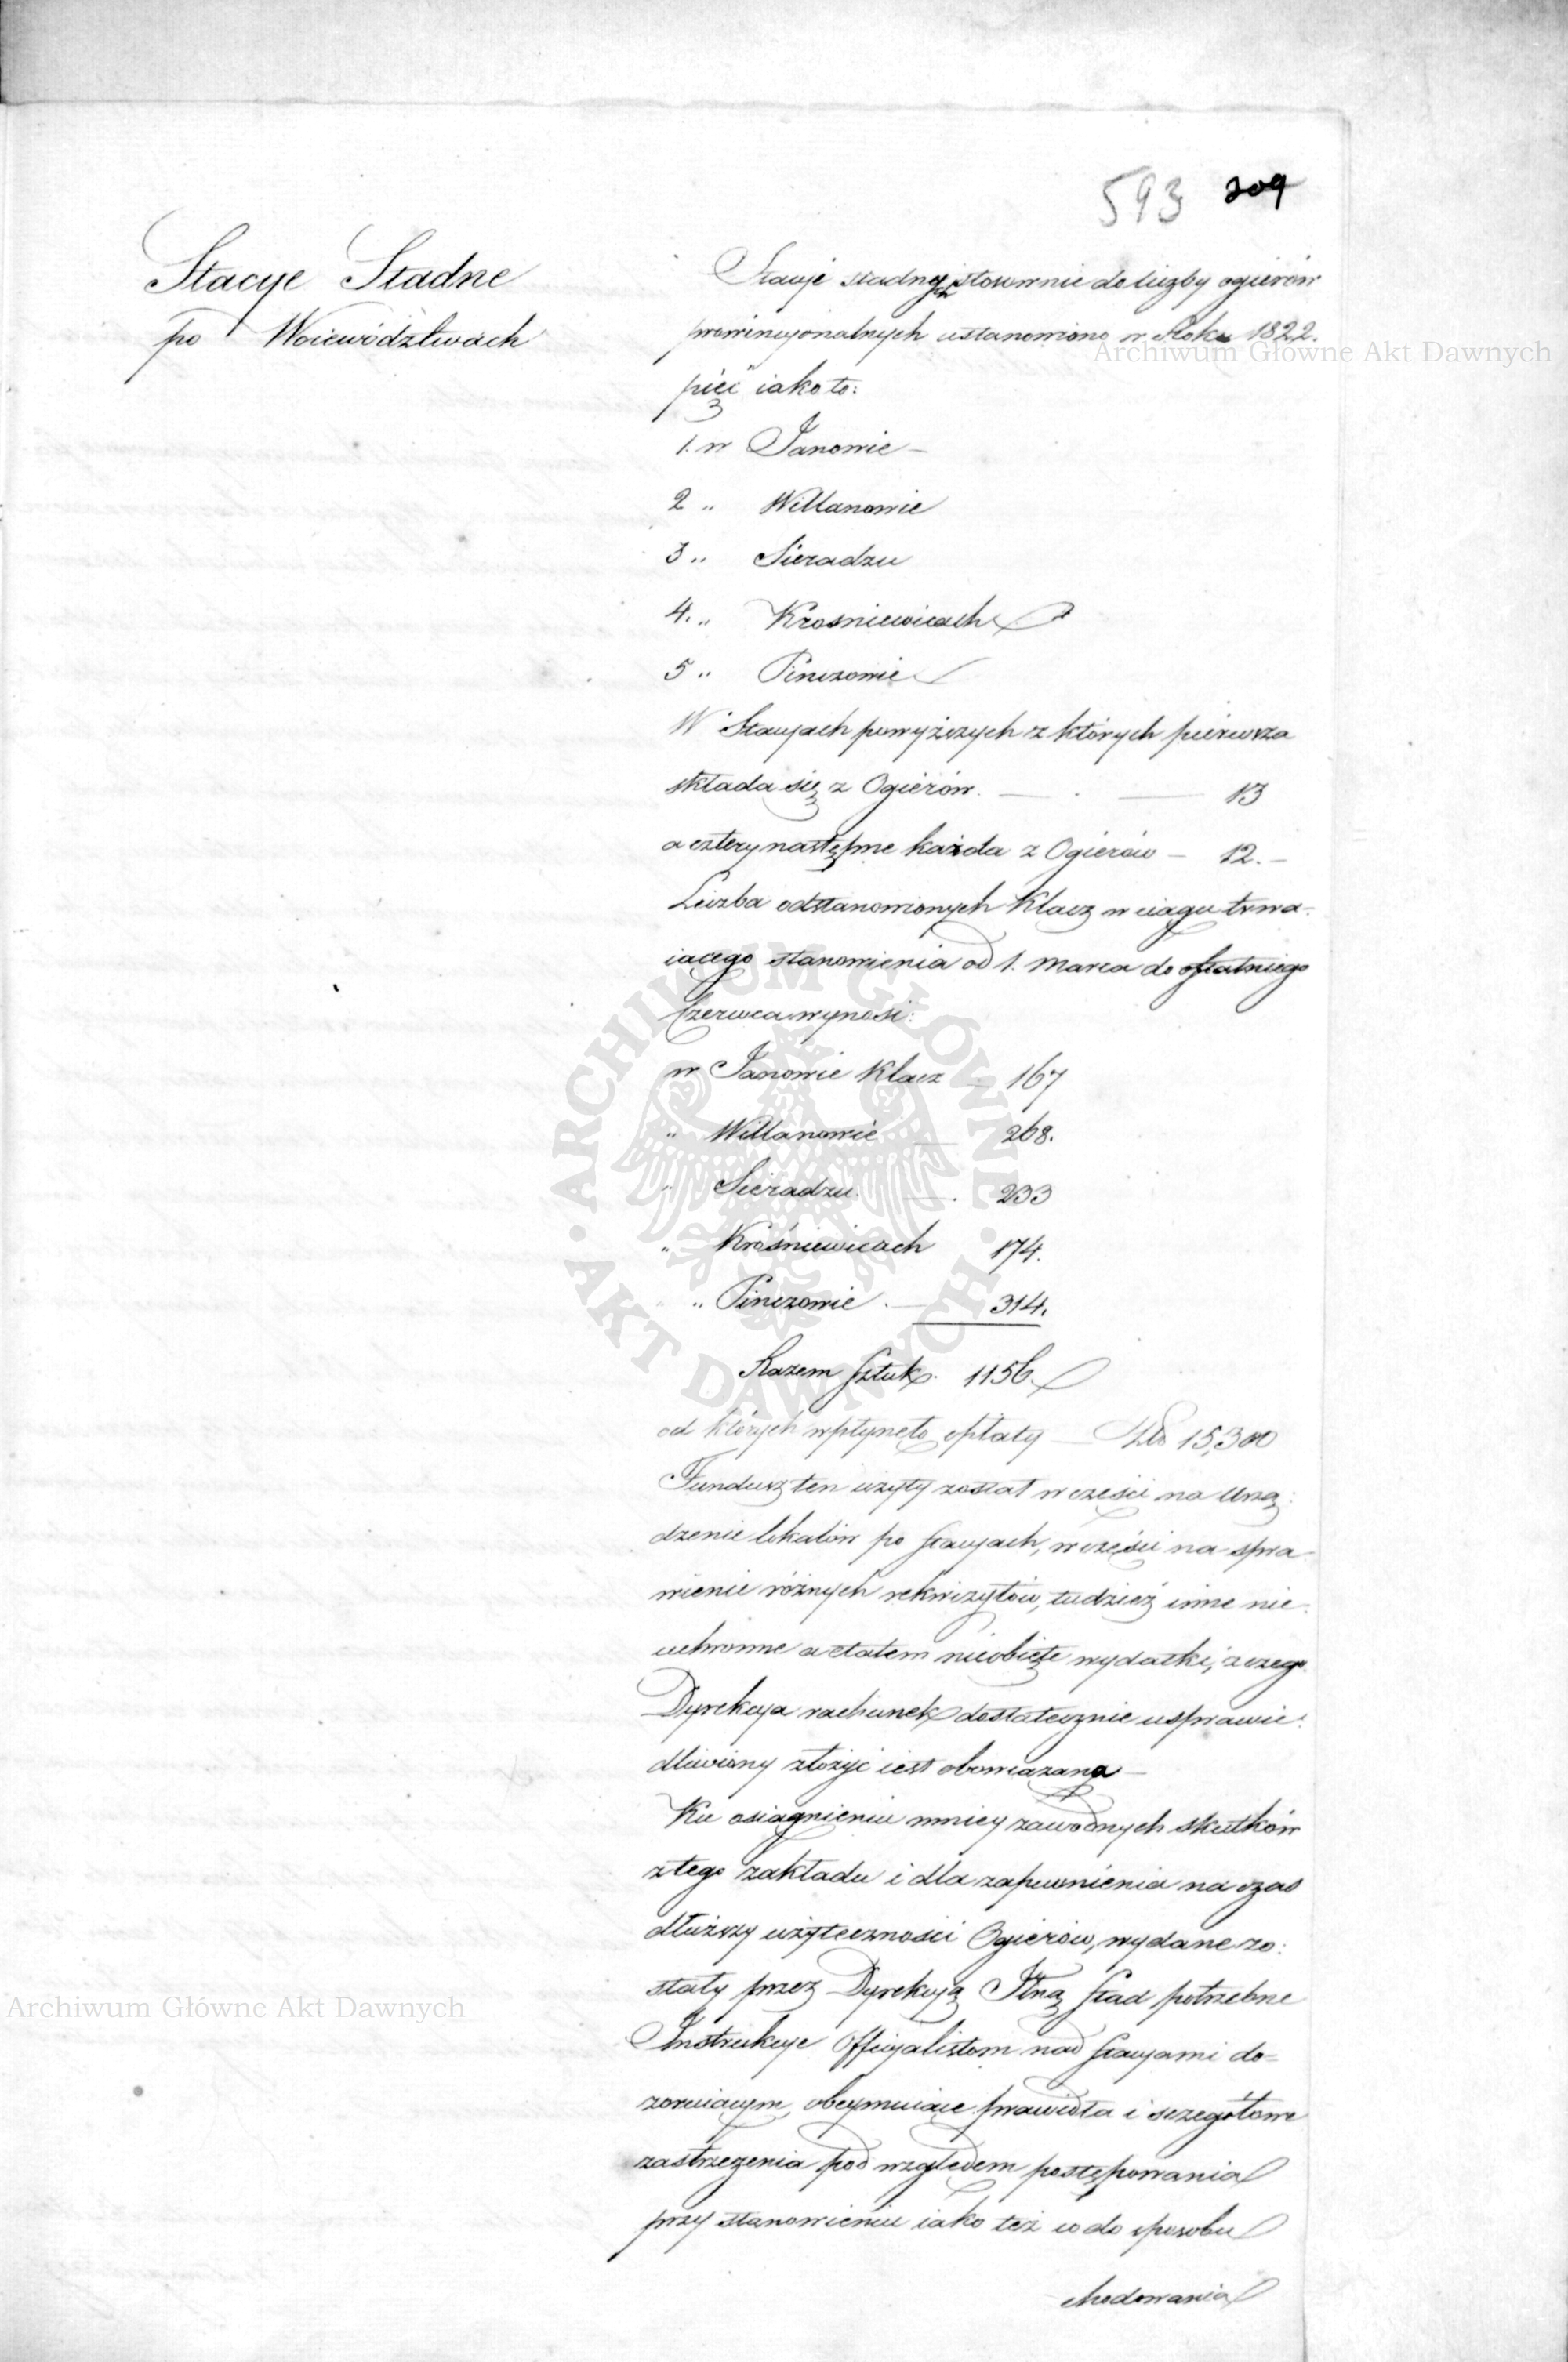 593 209
Stacye Stadne
po Woiewództwach
Stacyi stadnych stosownie do liczby ogierów
prowincyonalnych ustanowiono w Roku 1822.
pięć iako to:
1. w Janowie –
2 „ Willanowie
3 „ Sieradzu
4. „ Krosniewicach
5 „ Pinczowie
W Stacyach powyższych z których pierwsza
składa się z Ogierów. — . — 13
a cztery następne każda z Ogierów – 12. –
Liczba odstanowionych Klacz w ciągu trwa-
iącego stanowienia od 1. Marca do ostatniego
Czerwca wynosi:
w Janowie Klacz — 167
„ Willanowie — 268.
„ Sieradzu. — . 233
„ Krośniewicach 174.
„ Pinczowie . — 314.
Razem sztuk. 1156.
od których wpłynęło opłaty — Złp 15,300
Fundusz ten użyty został w części na urzą:
dzenie lokalów po stacyach, w części na spra-
wienie różnych rekwizytów, tudzież inne nie-
uchronne a etatem nieobięte wydatki, z czego
Dyrekcya rachunek dostatecznie usprawie:
dliwiony złożyć iest obowiązana –
Ku osiągnieniu mniey zawodnych skutków
z tego zakładu i dla zapewnienia na czas
dłuższy użyteczności Ogierów, wydane zo:
stały przez Dyrekcyą Jlną stad potrzebne
Instrukcye Officyalistom nad stacyami do=
zoruiącym, obeymuiące prawidła i szczegółowe
zastrzeżenia pod względem postępowania
przy stanowieniu iako też co do sposobu
chodowania
Archiwum Główne Akt Dawnych
Archiwum Główne Akt Dawnych
ARCHIWUM GŁÓWNE AKT DAWNYCH